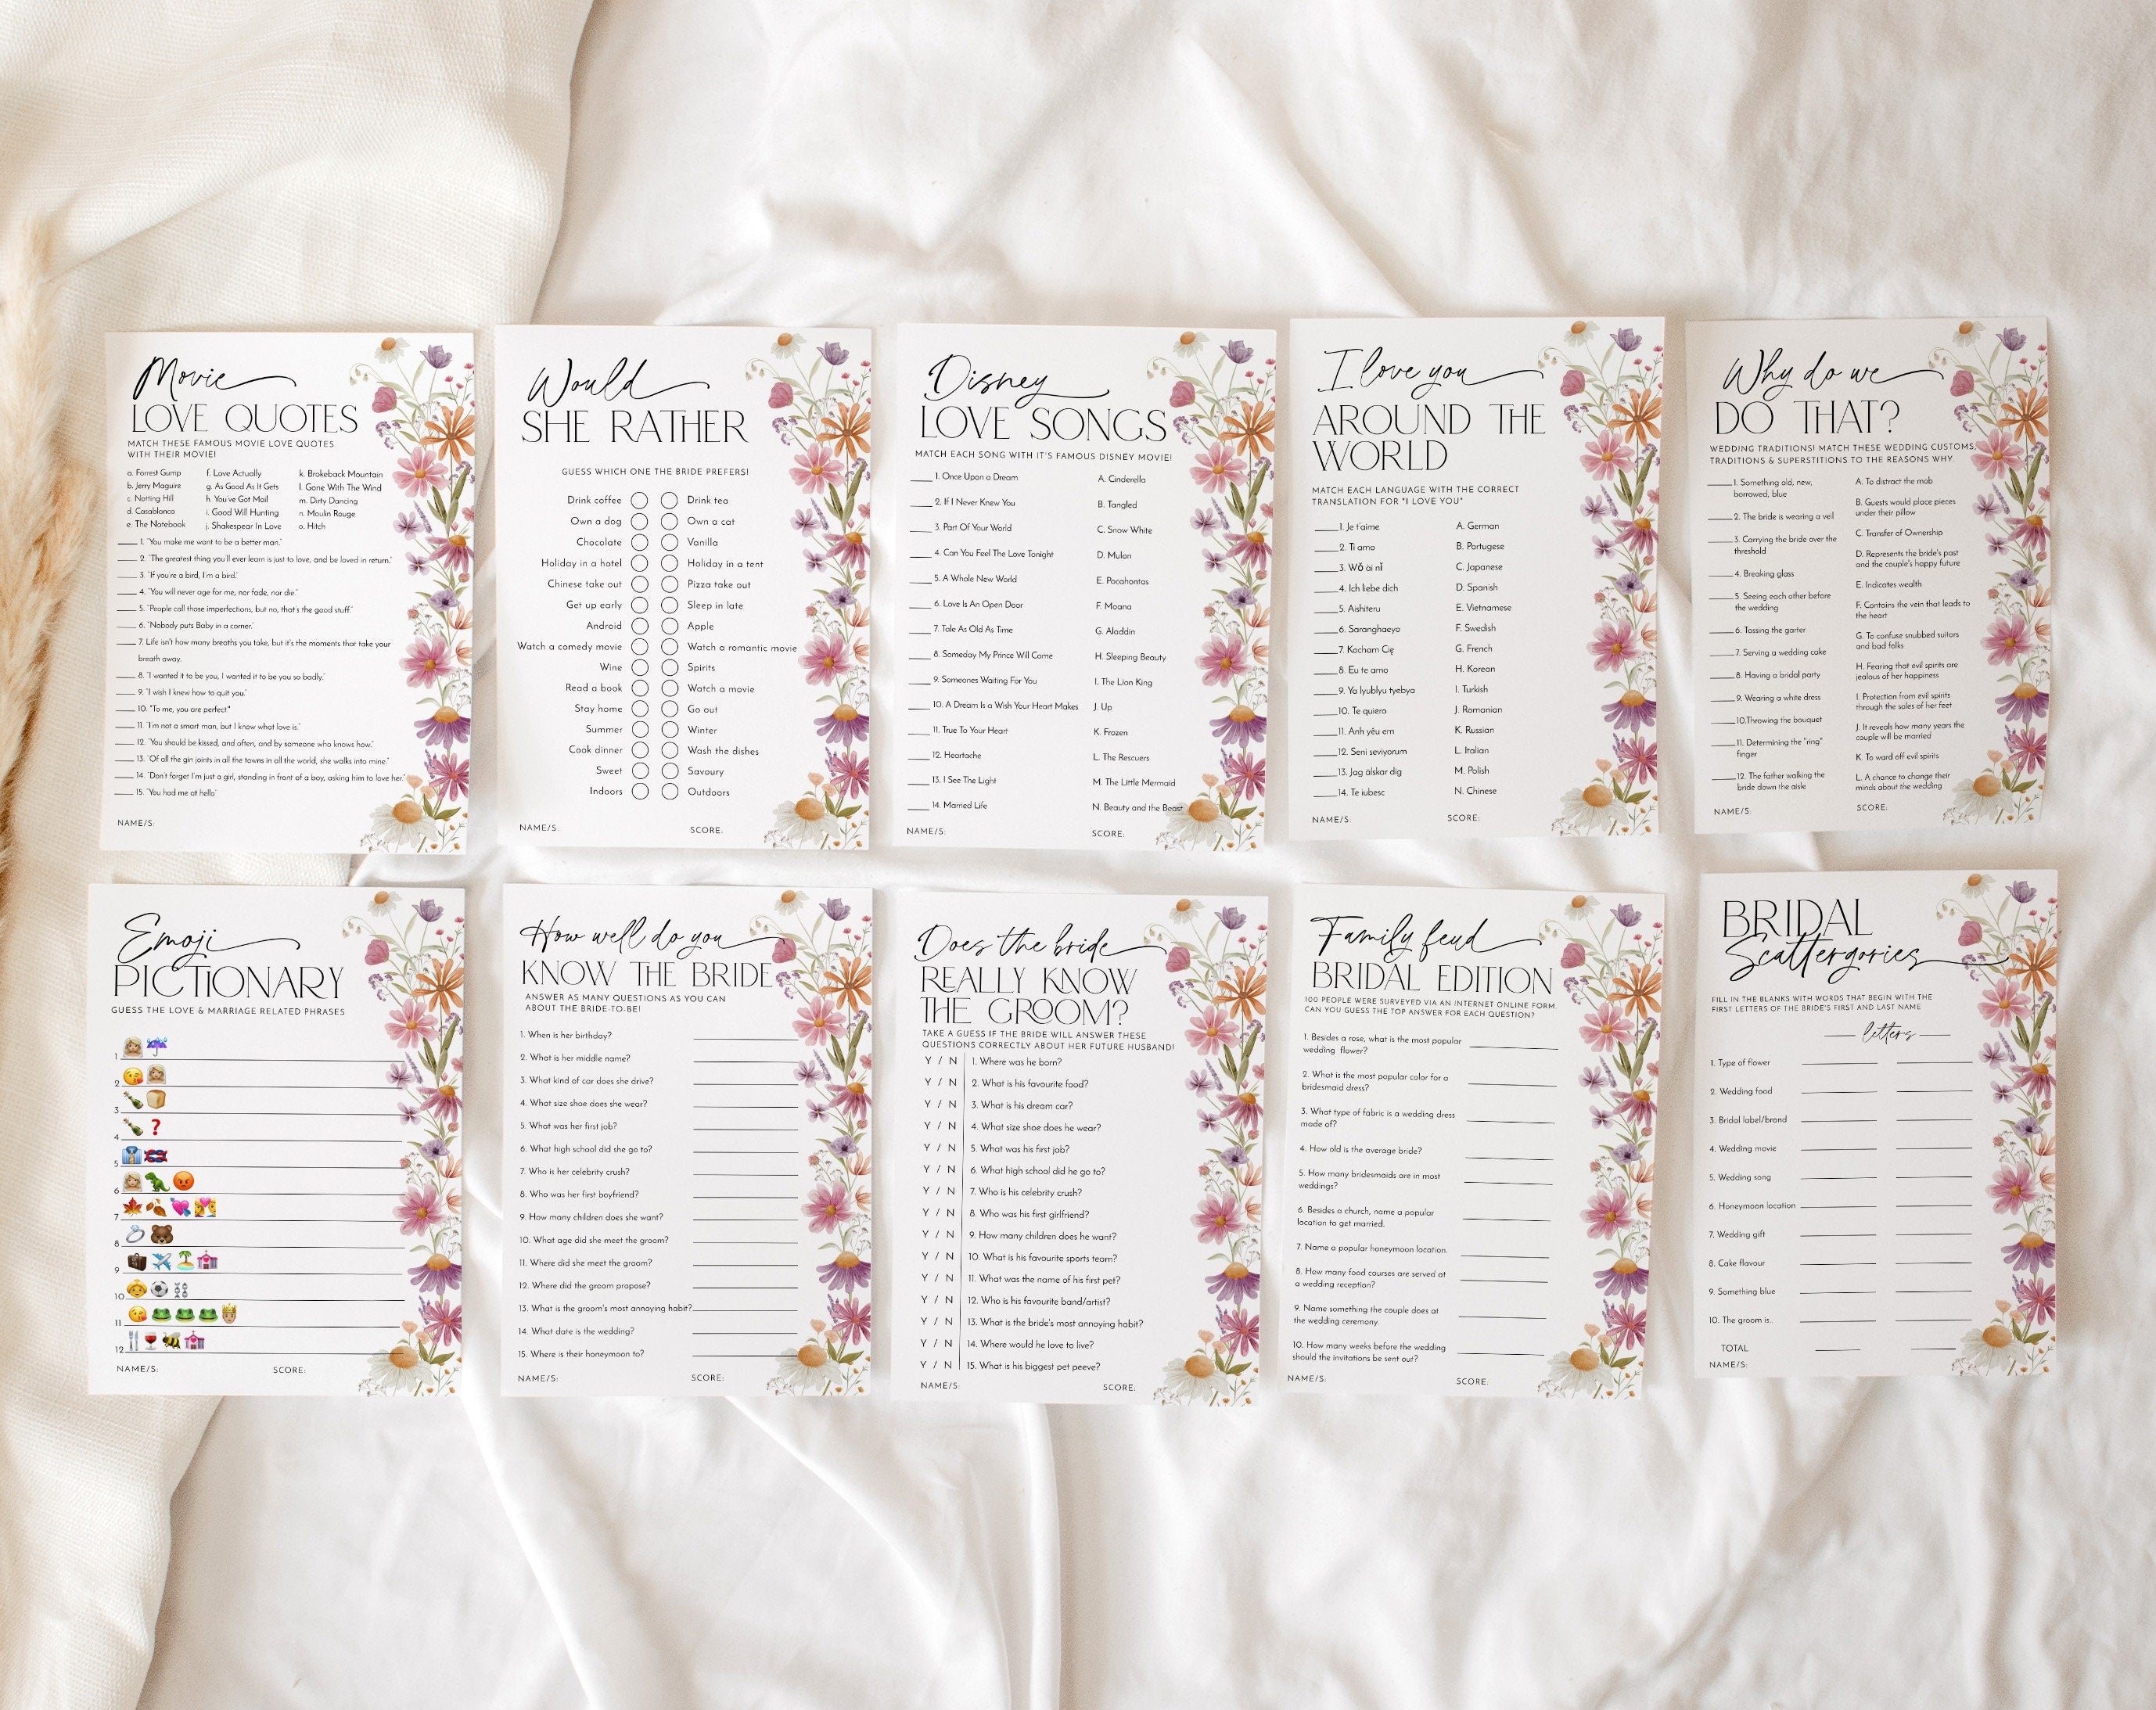 Movie
LOVE QUOTES
MATCH THESE FAMOUS MOVIE LOVE QUOTES
WITH THEIR MOVIE!
a. Forrest Gump f. Love Actually k. Brokeback Mountain
b. Jerry Maguire g. As Good As It Gets l. Gone With The Wind
c. Notting Hill h. You've Got Mail m. Dirty Dancing
d. Casablanca i. Good Will Hunting n. Moulin Rouge
e. The Notebook j. Shakespear In Love o. Hitch
1. "You make me want to be a better man."
2. "The greatest thing you'll ever learn is just to love, and be loved in return."
3. "If you're a bird, I'm a bird."
4. "You will never age for me, nor fade, nor die."
5. "People call those imperfections, but no, that's the good stuff."
6. "Nobody puts Baby in a corner."
7. Life isn't how many breaths you take, but it's the moments that take your
breath away.
8. "I wanted it to be you, I wanted it to be you so badly."
9. "I wish I knew how to quit you."
10. "To me, you are perfect"
11. "I'm not a smart man, but I know what love is."
12. "You should be kissed, and often, and by someone who knows how."
13. "Of all the gin joints in all the towns in all the world, she walks into mine."
14. "Don't forget I'm just a girl, standing in front of a boy, asking him to love her."
15. "You had me at hello"
NAME/S:
Would
SHE RATHER
GUESS WHICH ONE THE BRIDE PREFERS!
Drink coffee Drink tea
Own a dog Own a cat
Chocolate Vanilla
Holiday in a hotel Holiday in a tent
Chinese take out Pizza take out
Get up early Sleep in late
Android Apple
Watch a comedy movie Watch a romantic movie
Wine Spirits
Read a book Watch a movie
Stay home Go out
Summer Winter
Cook dinner Wash the dishes
Sweet Savoury
Indoors Outdoors
NAME/S: SCORE:
Disney
LOVE SONGS
MATCH EACH SONG WITH IT'S FAMOUS DISNEY MOVIE!
1. Once Upon a Dream A. Cinderella
2. If I Never Knew You B. Tangled
3. Part Of Your World C. Snow White
4. Can You Feel The Love Tonight D. Mulan
5. A Whole New World E. Pocahontas
6. Love Is An Open Door F. Moana
7. Tale As Old As Time G. Aladdin
8. Someday My Prince Will Come H. Sleeping Beauty
9. Someones Waiting For You I. The Lion King
10. A Dream Is a Wish Your Heart Makes J. Up
11. True To Your Heart K. Frozen
12. Heartache L. The Rescuers
13. I See The Light M. The Little Mermaid
14. Married Life N. Beauty and the Beast
NAME/S: SCORE:
I love you
AROUND THE
WORLD
MATCH EACH LANGUAGE WITH THE CORRECT
TRANSLATION FOR "I LOVE YOU"
1. Je t'aime A. German
2. Ti amo B. Portugese
3. Wǒ ài nǐ C. Japanese
4. Ich liebe dich D. Spanish
5. Aishiteru E. Vietnamese
6. Saranghaeyo F. Swedish
7. Kocham Cię G. French
8. Eu te amo H. Korean
9. Ya lyublyu tyebya I. Turkish
10. Te quiero J. Romanian
11. Anh yêu em K. Russian
12. Seni seviyorum L. Italian
13. Jag älskar dig M. Polish
14. Te iubesc N. Chinese
NAME/S: SCORE:
Why do we
DO THAT?
WEDDING TRADITIONS! MATCH THESE WEDDING CUSTOMS,
TRADITIONS & SUPERSTITIONS TO THE REASONS WHY.
1. Something old, new,
borrowed, blue
2. The bride is wearing a veil
3. Carrying the bride over the
threshold
4. Breaking glass
5. Seeing each other before
the wedding
6. Tossing the garter
7. Serving a wedding cake
8. Having a bridal party
9. Wearing a white dress
10.Throwing the bouquet
11. Determining the "ring"
finger
12. The father walking the
bride down the aisle
A. To distract the mob
B. Guests would place pieces
under their pillow
C. Transfer of Ownership
D. Represents the bride's past
and the couple's happy future
E. Indicates wealth
F. Contains the vein that leads to
the heart
G. To confuse snubbed suitors
and bad folks
H. Fearing that evil spirits are
jealous of her happiness
I. Protection from evil spirits
through the soles of her feet
J. It reveals how many years the
couple will be married
K. To ward off evil spirits
L. A chance to change their
minds about the wedding
NAME/S: SCORE:
Emoji
PICTIONARY
GUESS THE LOVE & MARRIAGE RELATED PHRASES
1
2
3
4
5
6
7
8
9
10
11
12
NAME/S: SCORE:
How well do you
KNOW THE BRIDE
ANSWER AS MANY QUESTIONS AS YOU CAN
ABOUT THE BRIDE-TO-BE!
1. When is her birthday?
2. What is her middle name?
3. What kind of car does she drive?
4. What size shoe does she wear?
5. What was her first job?
6. What high school did she go to?
7. Who is her celebrity crush?
8. Who was her first boyfriend?
9. How many children does she want?
10. What age did she meet the groom?
11. Where did she meet the groom?
12. Where did the groom propose?
13. What is the groom's most annoying habit?
14. What date is the wedding?
15. Where is their honeymoon to?
NAME/S: SCORE:
Does the bride
REALLY KNOW
THE GROOM?
TAKE A GUESS IF THE BRIDE WILL ANSWER THESE
QUESTIONS CORRECTLY ABOUT HER FUTURE HUSBAND!
Y / N 1. Where was he born?
Y / N 2. What is his favourite food?
Y / N 3. What is his dream car?
Y / N 4. What size shoe does he wear?
Y / N 5. What was his first job?
Y / N 6. What high school did he go to?
Y / N 7. Who is his celebrity crush?
Y / N 8. Who was his first girlfriend?
Y / N 9. How many children does he want?
Y / N 10. What is his favourite sports team?
Y / N 11. What was the name of his first pet?
Y / N 12. Who is his favourite band/artist?
Y / N 13. What is the bride's most annoying habit?
Y / N 14. Where would he love to live?
Y / N 15. What is his biggest pet peeve?
NAME/S: SCORE:
Family feud
BRIDAL EDITION
100 PEOPLE WERE SURVEYED VIA AN INTERNET ONLINE FORM.
CAN YOU GUESS THE TOP ANSWER FOR EACH QUESTION?
1. Besides a rose, what is the most popular
wedding flower?
2. What is the most popular color for a
bridesmaid dress?
3. What type of fabric is a wedding dress
made of?
4. How old is the average bride?
5. How many bridesmaids are in most
weddings?
6. Besides a church, name a popular
location to get married.
7. Name a popular honeymoon location.
8. How many food courses are served at
a wedding reception?
9. Name something the couple does at
the wedding ceremony.
10. How many weeks before the wedding
should the invitations be sent out?
NAME/S: SCORE:
BRIDAL
Scattergories
FILL IN THE BLANKS WITH WORDS THAT BEGIN WITH THE
FIRST LETTERS OF THE BRIDE'S FIRST AND LAST NAME
letters
1. Type of flower
2. Wedding food
3. Bridal label/brand
4. Wedding movie
5. Wedding song
6. Honeymoon location
7. Wedding gift
8. Cake flavour
9. Something blue
10. The groom is..
TOTAL
NAME/S: